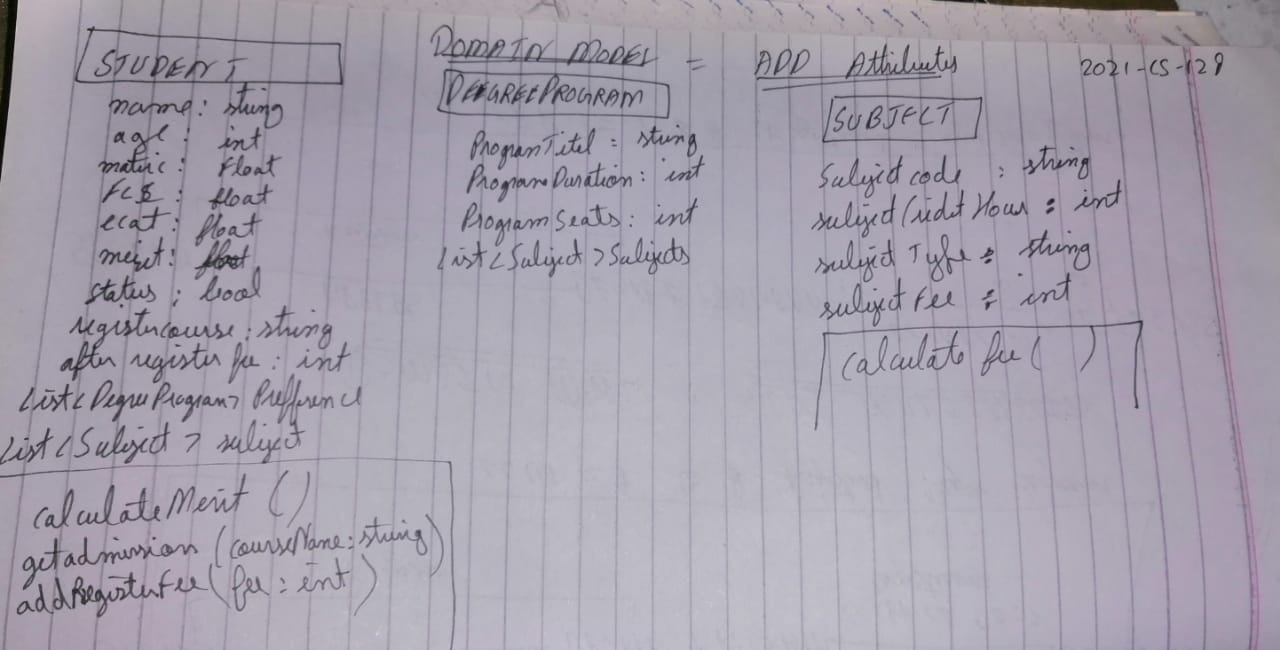 DOMAIN MODEL = ADD Attributes 2021-CS-129
STUDENT
name: string
age: int
matric: Float
FCS: float
ecat: float
merit: float
status: bool
registercourse: string
after register fee: int
List<DegreeProgram> Prefference
List<Subject> subject
calculateMerit ()
getadmission (courseName: string)
addRegisterFee (fee: int)
DEGREEPROGRAM
ProgramTitel: string
ProgramDuration: int
ProgramSeats: int
List<Subject>Subjects
SUBJECT
Subject code : string
subject Cridit Hour : int
subject Type : string
subject Fee : int
calculate fee ( )